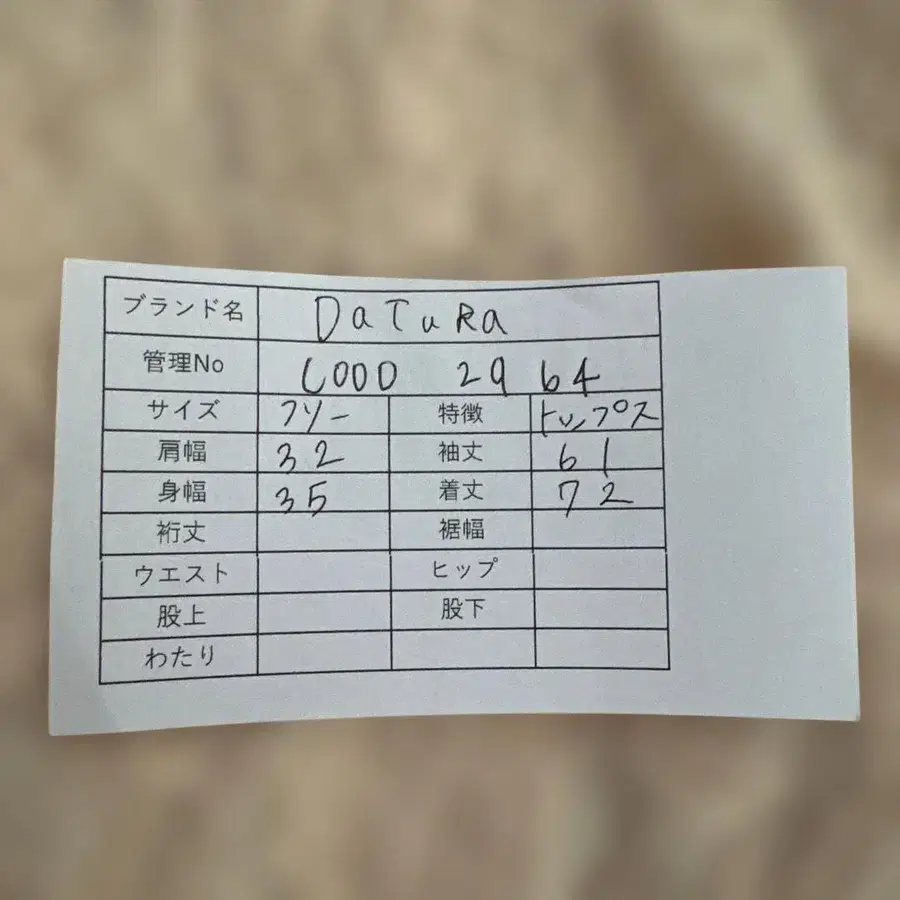 ブランド名 DaTuRa
管理No L000 2964
サイズ フリー 特徴 トップス
肩幅 32 袖丈 61
身幅 35 着丈 72
裄丈 裾幅
ウエスト ヒップ
股上 股下
わたり